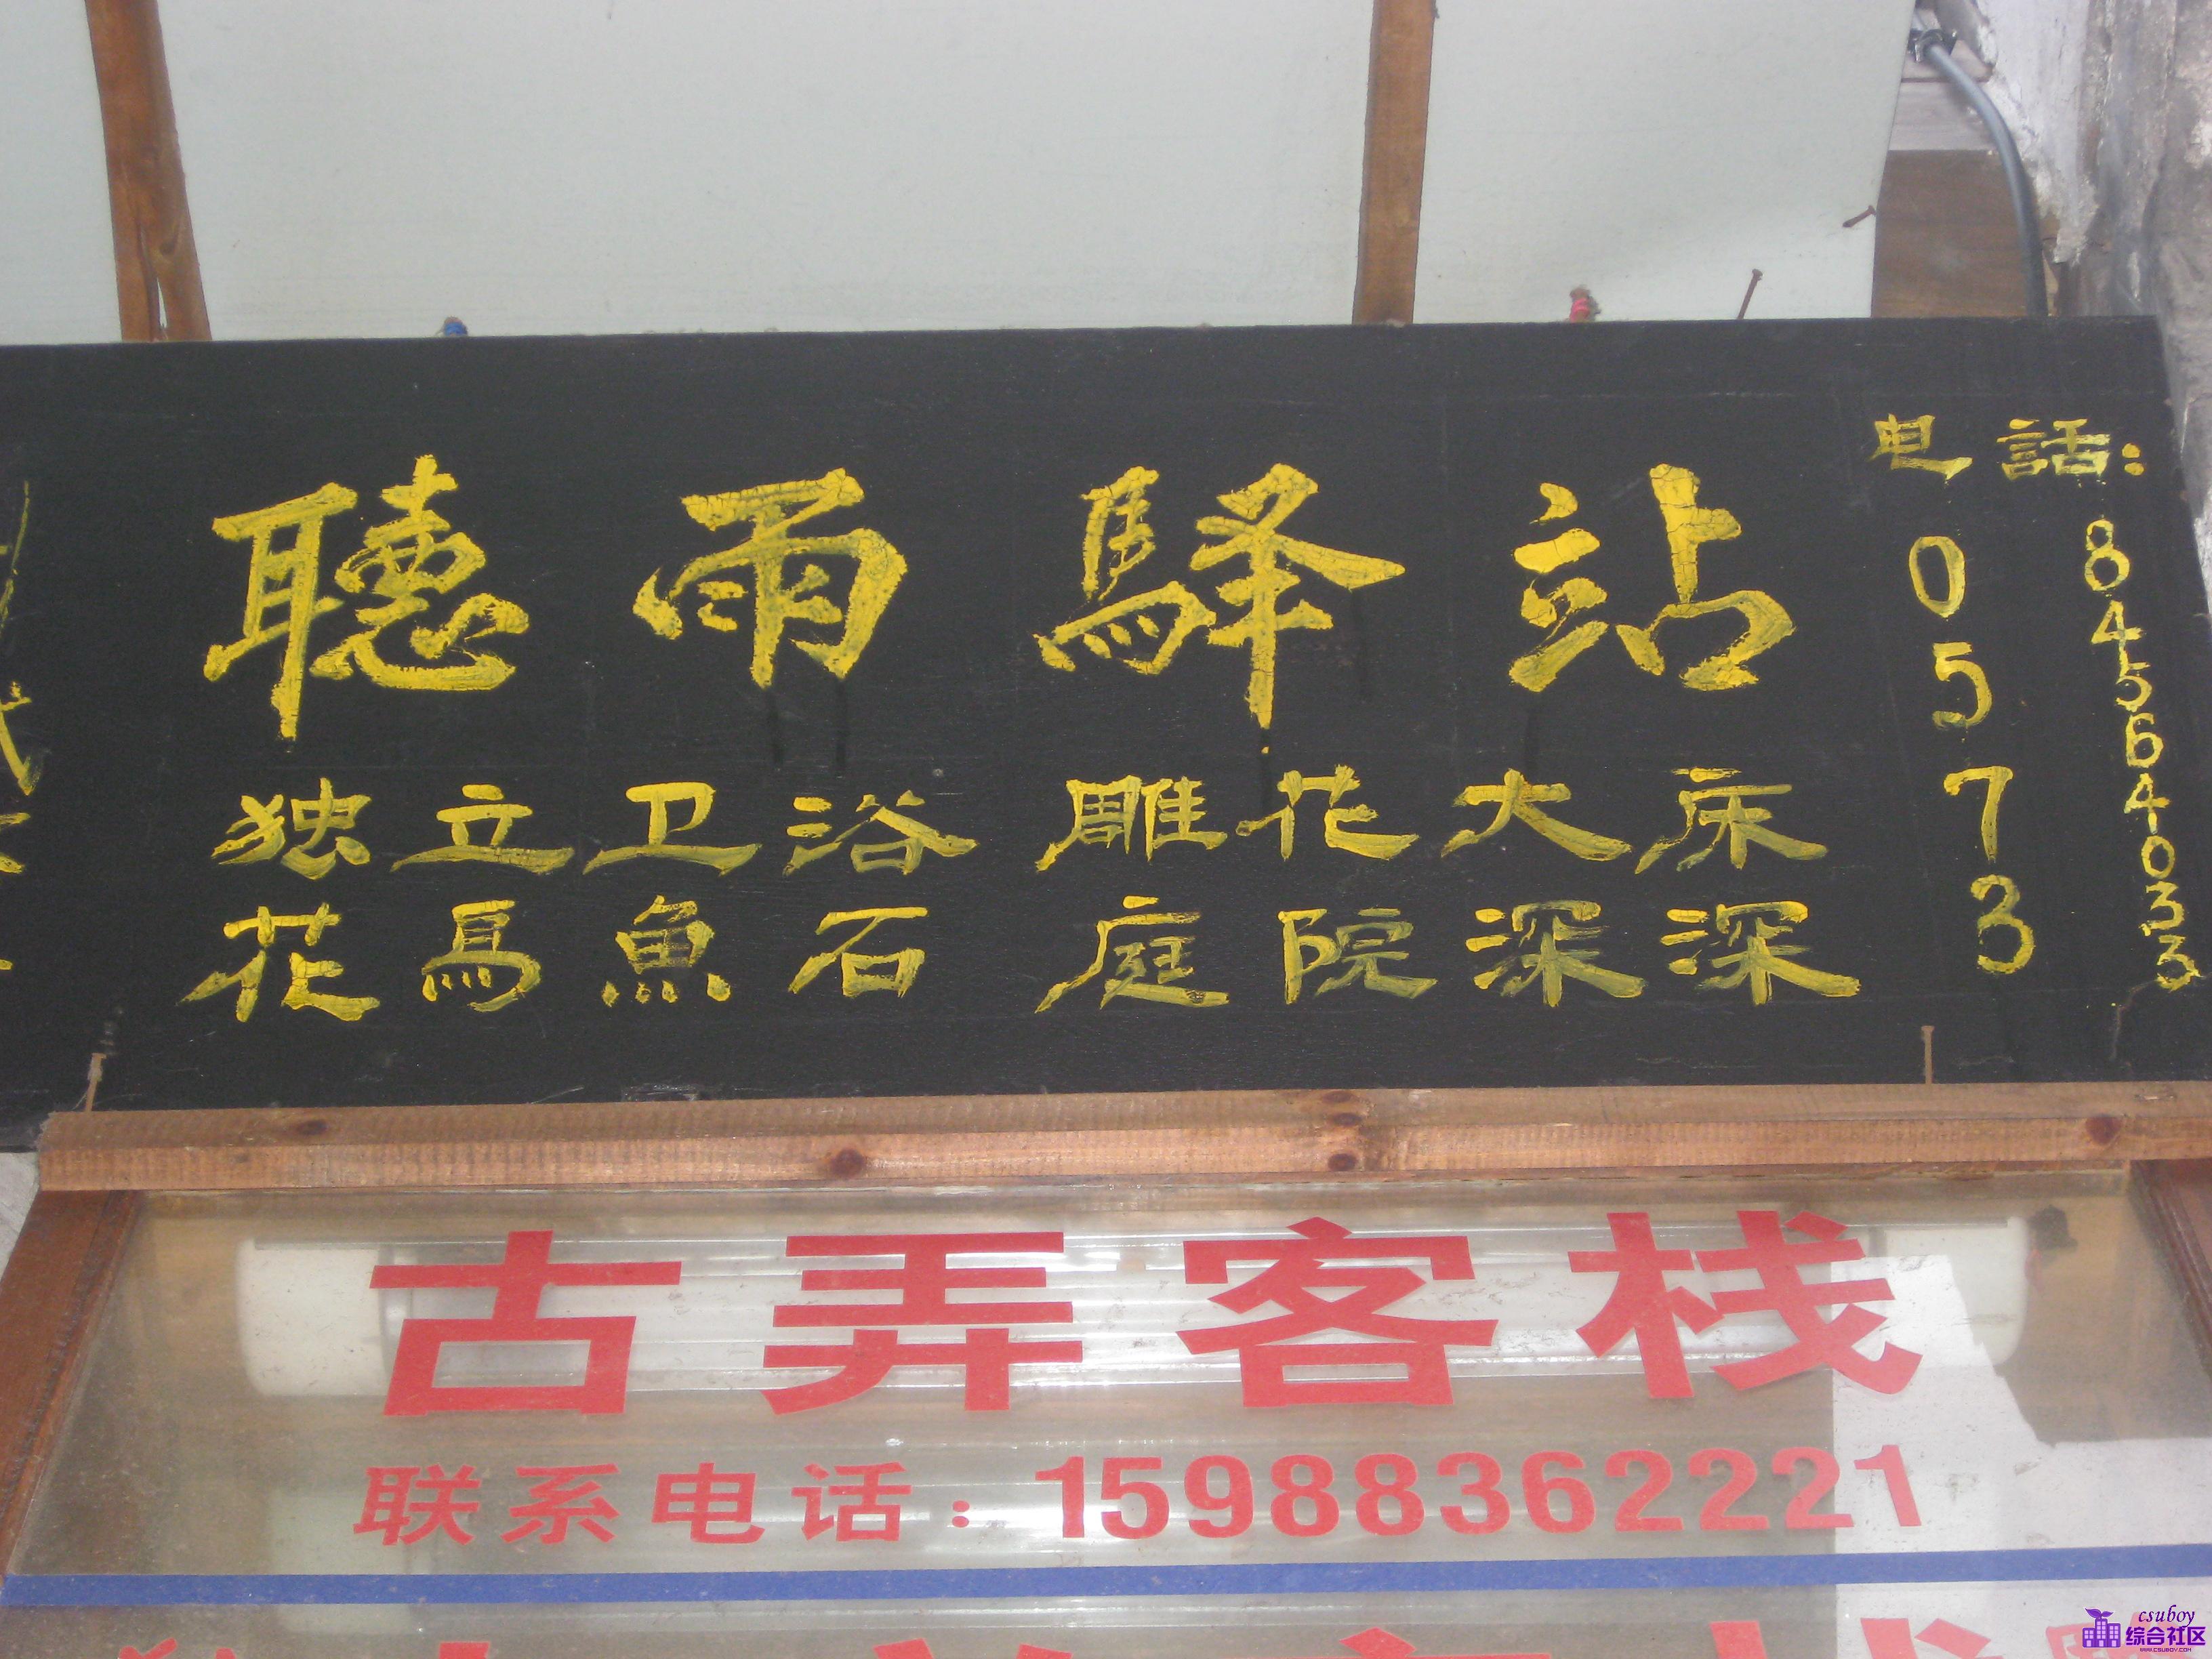 聽雨驛站
独立卫浴 雕花大床
花鳥魚石 庭院深深
电話:
0573
84564033
古弄客栈
联系电话:15988362221
csuboy
综合社区
www.csuboy.com